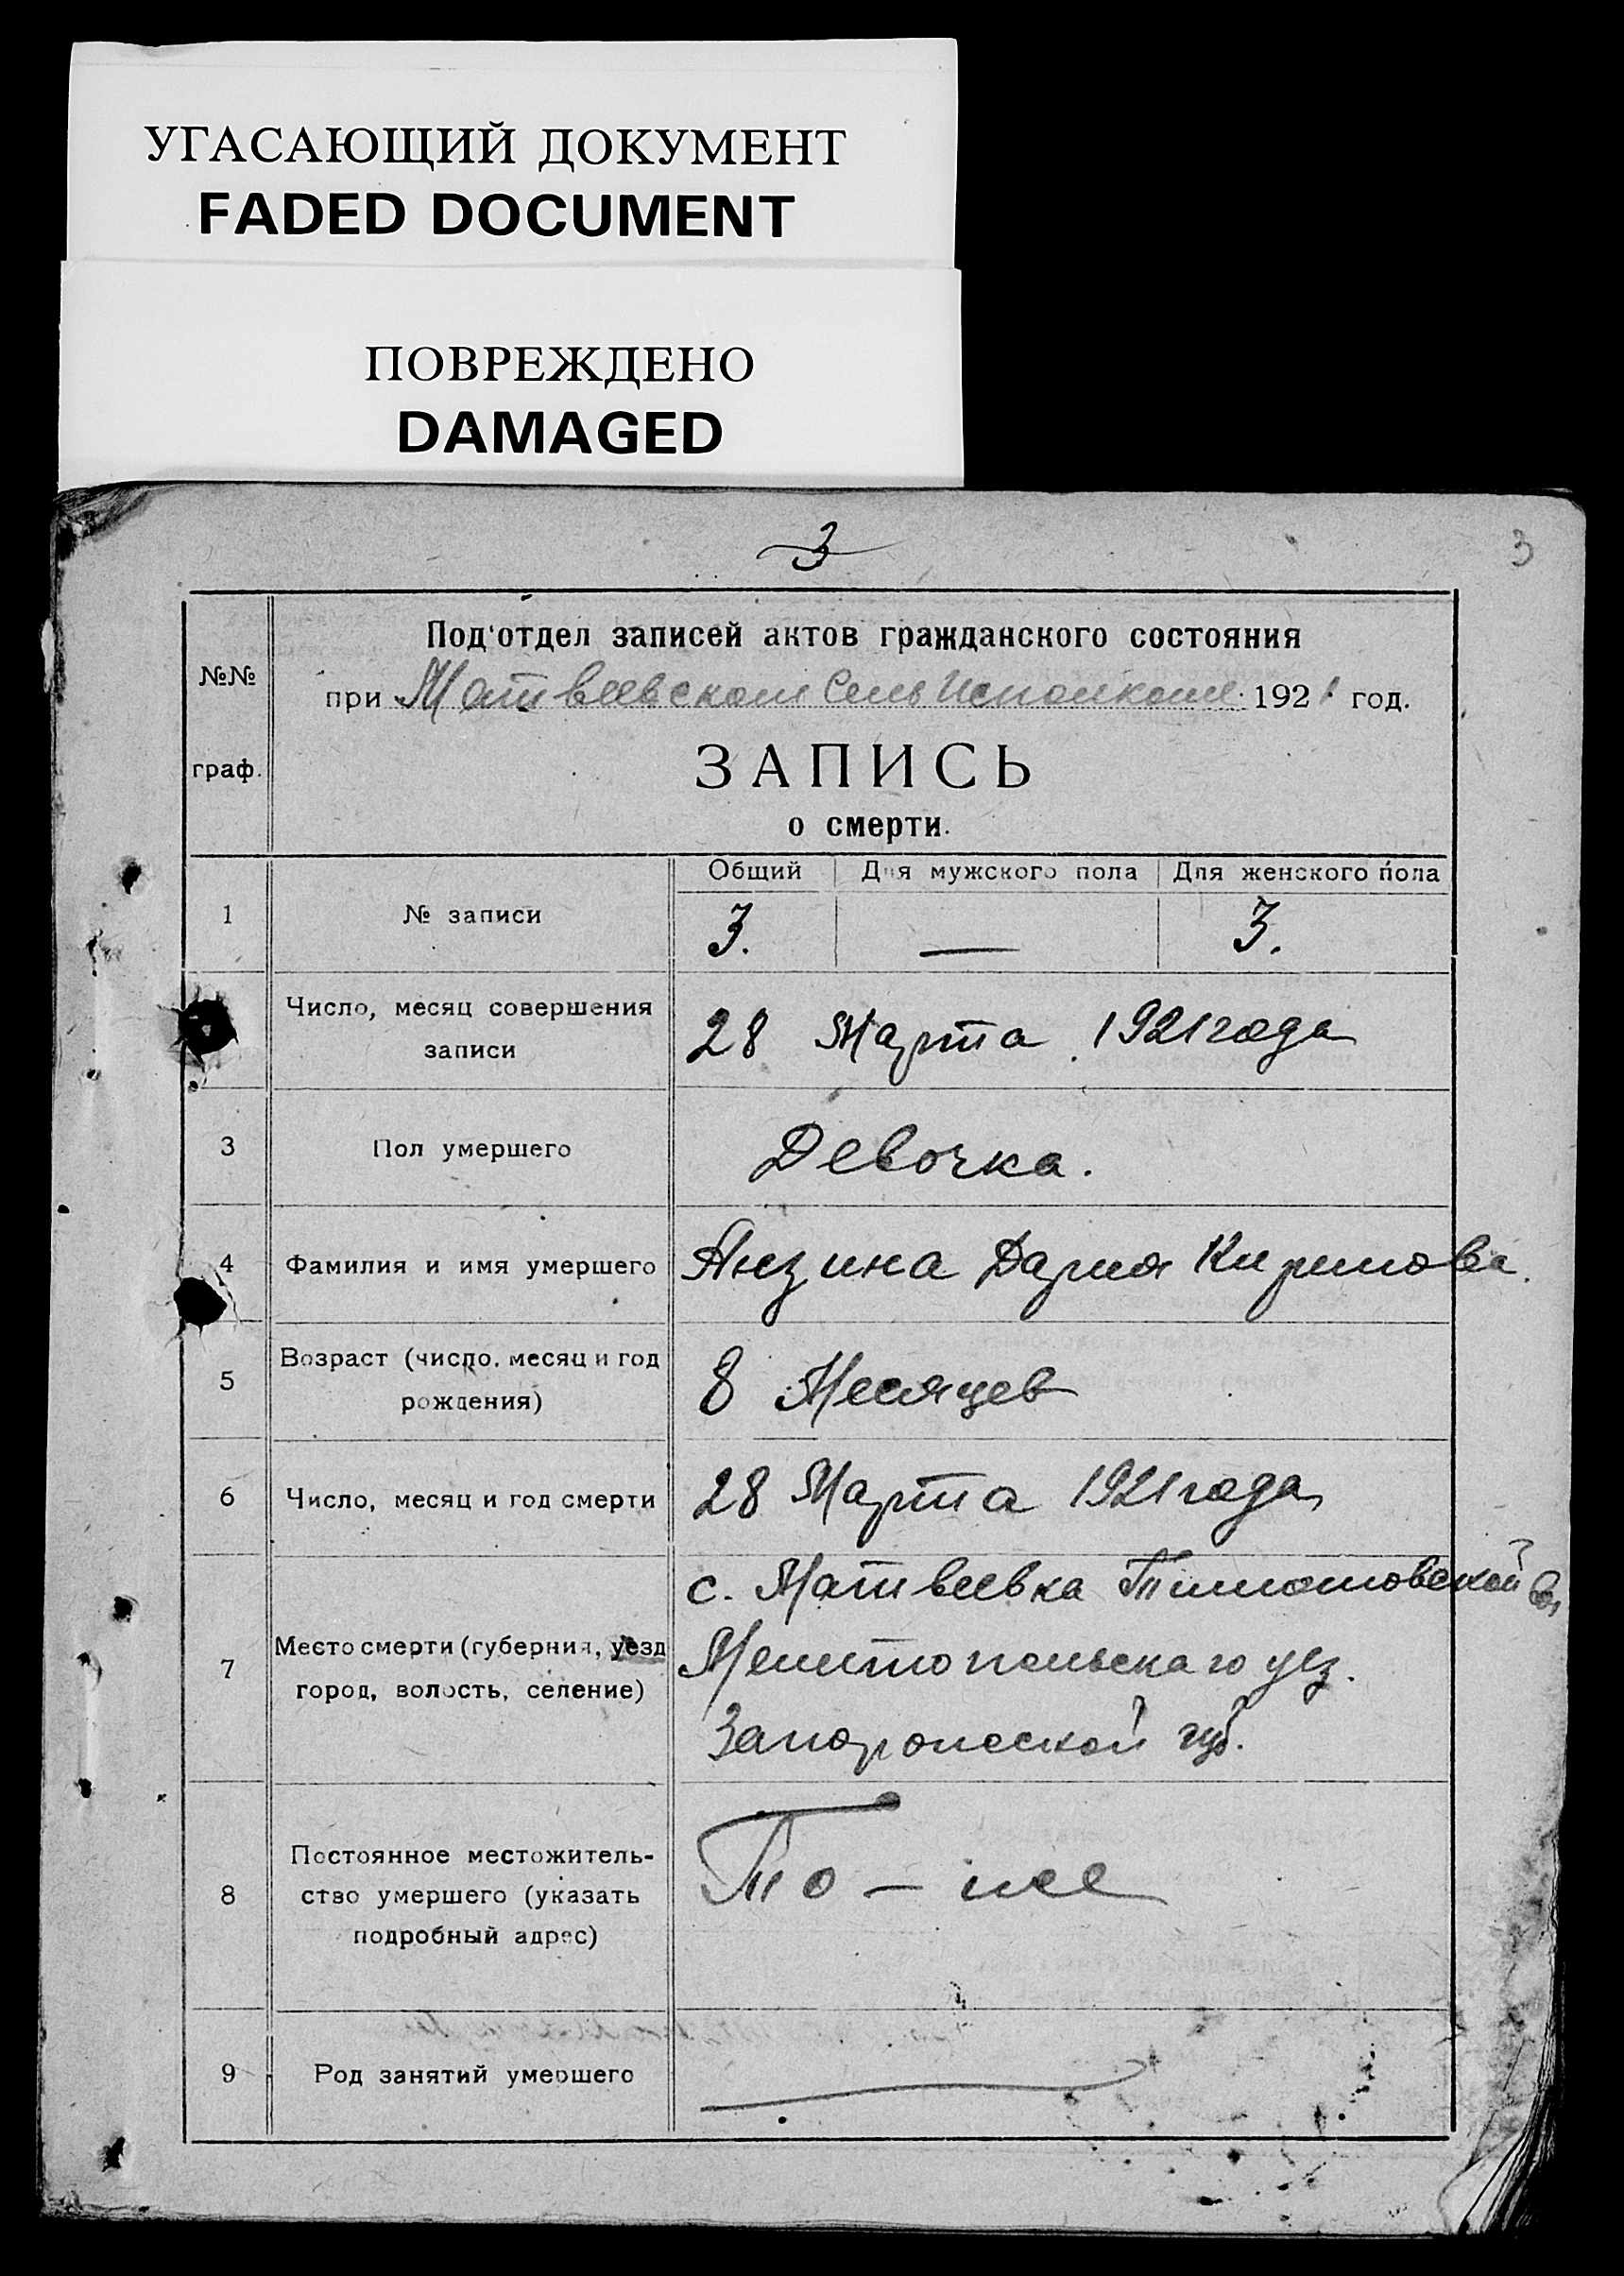 УГАСАЮЩИЙ ДОКУМЕНТ
FADED DOCUMENT
ПОВРЕЖДЕНО
DAMAGED
3
3
№№
граф.
Под'отдел записей актов гражданского состояния
при Матвеевском Сель Исполкоме 1921 год.
ЗАПИСЬ
о смерти.
Общий Для мужского пола Для женского пола
1 № записи 3. — 3.
Число, месяц совершения
записи
28 Марта 1921 года
3 Пол умершего Девочка.
4 Фамилия и имя умершего Янзина Дария
5 Возраст (число, месяц и год
рождения)
8 Месяцев
6 Число, месяц и год смерти 28 Марта 1921 года
7 Место смерти (губерния, уезд
город, волость, селение)
с. Матвеевка Тимошовской вол
Мелитопольскаго уез.
Запорожской губ.
8 Постоянное местожитель-
ство умершего (указать
подробный адрес)
То – же
9 Род занятий умершего